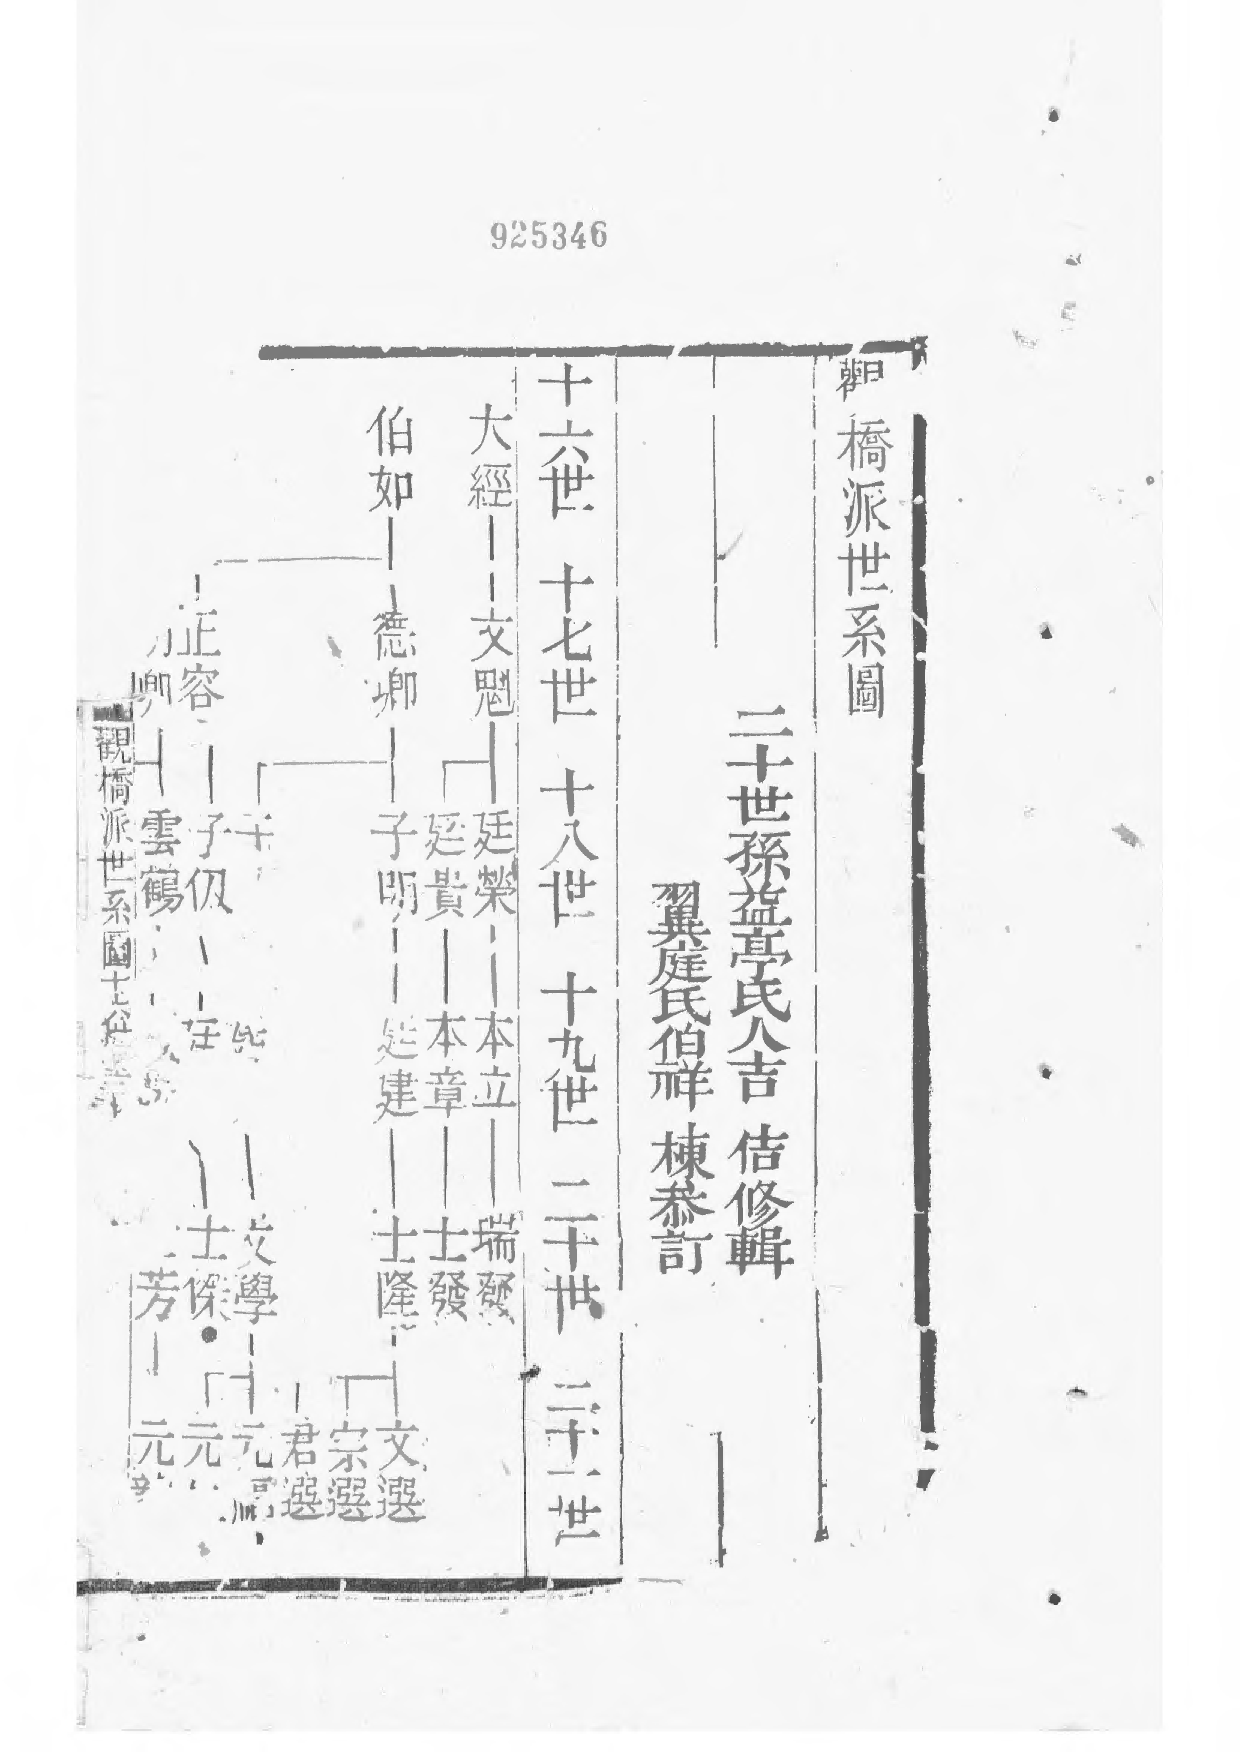 925346
觀橋派世系圖
二十世孫益亭氏人吉 佶修輯
翼庭氏伯祥 棟恭訂
十六世 十七世 十八世 十九世 二十世 二十一世
大經 文魁 廷榮 本立 瑞發
廷貴 本章 士發
伯如 德卿 子明 廷建 士隆 文選
宗選
君選
文學 元
正容 子仭 在 士傑 元
卿 雲鶴 芳 元
觀橋派世系圖